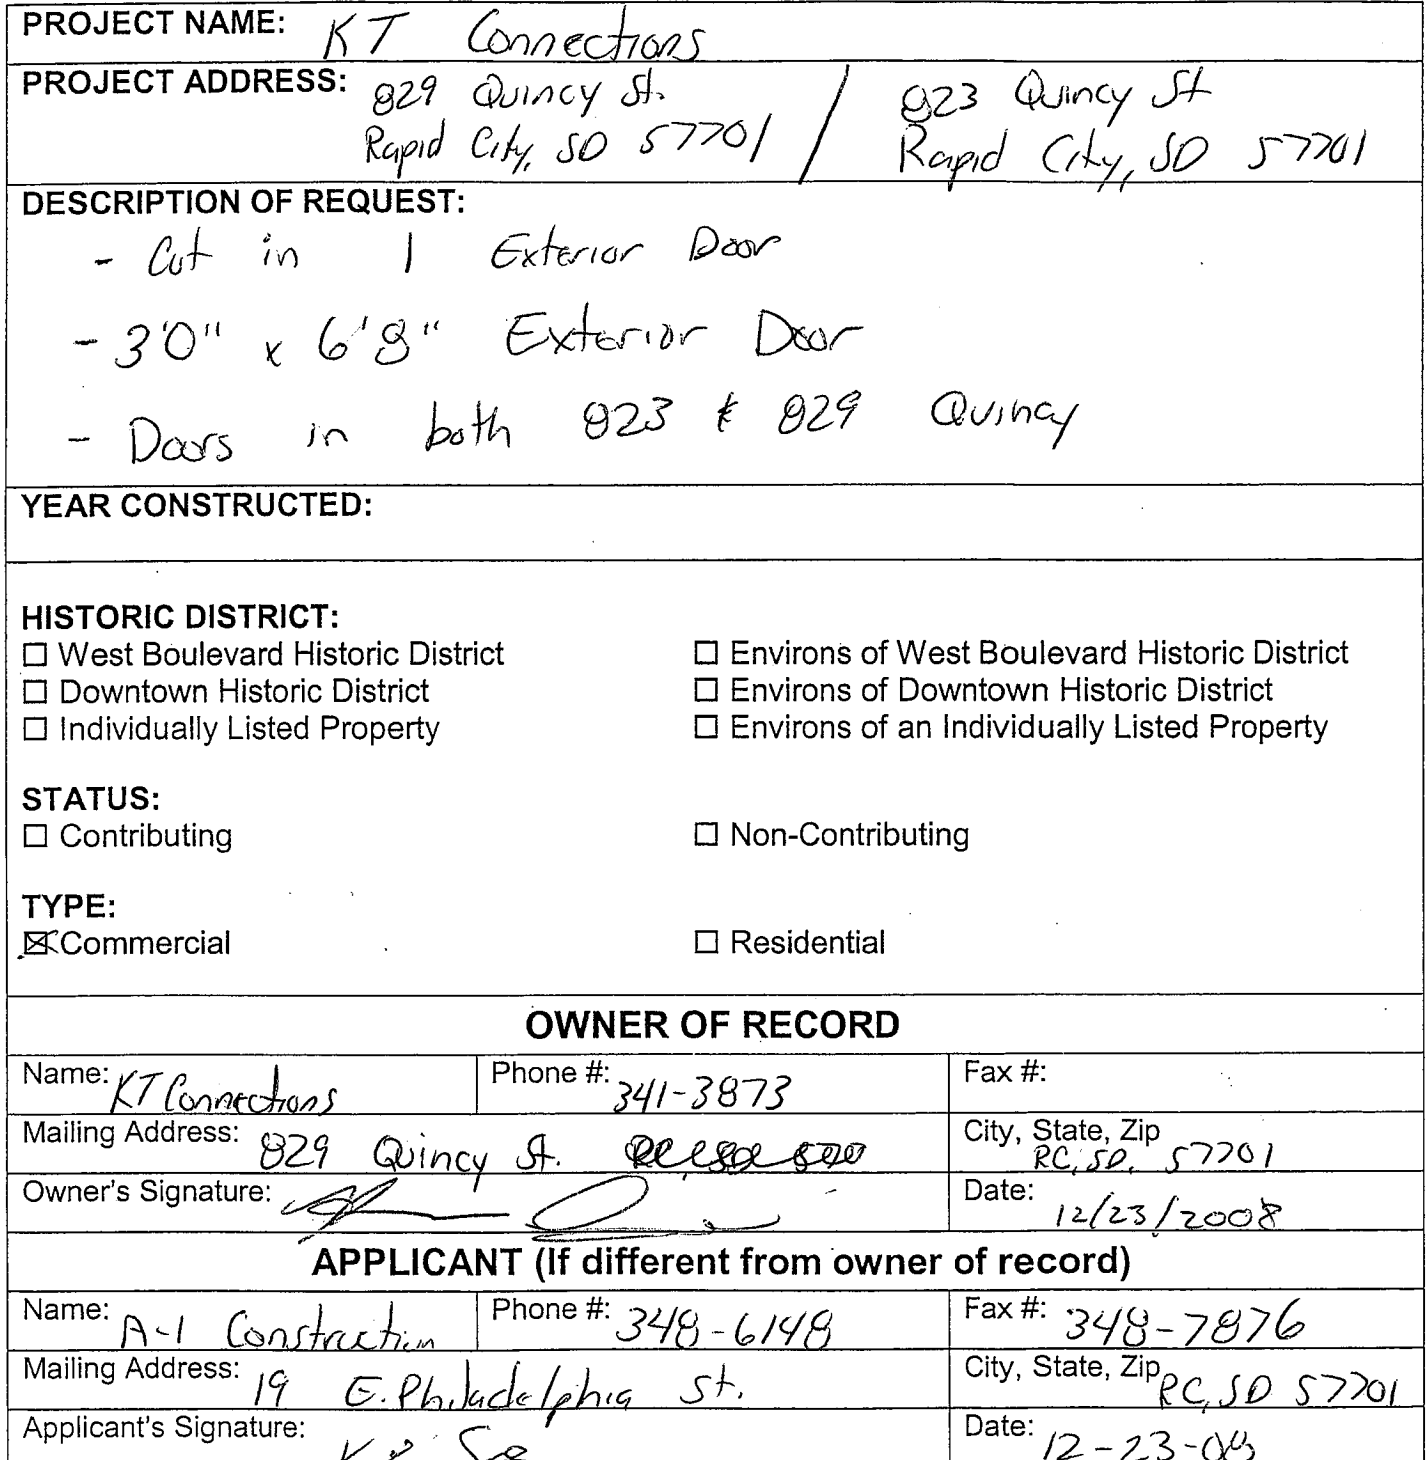 PROJECT NAME: KT Connections
PROJECT ADDRESS: 829 Quincy St. / 823 Quincy St
Rapid City, SD 57701 Rapid City, SD 57701
DESCRIPTION OF REQUEST:
- Cut in 1 Exterior Door
- 3'0" x 6'8" Exterior Door
- Doors in both 823 & 829 Quincy
YEAR CONSTRUCTED:
HISTORIC DISTRICT:
☐ West Boulevard Historic District ☐ Environs of West Boulevard Historic District
☐ Downtown Historic District ☐ Environs of Downtown Historic District
☐ Individually Listed Property ☐ Environs of an Individually Listed Property
STATUS:
☐ Contributing ☐ Non-Contributing
TYPE:
☒ Commercial ☐ Residential
OWNER OF RECORD
Name: KT Connections Phone #: 341-3873 Fax #:
Mailing Address: 829 Quincy St. City, State, Zip RC, SD. 57701
Owner's Signature: Date: 12/23/2008
APPLICANT (If different from owner of record)
Name: A-1 Construction Phone #: 348-6148 Fax #: 348-7876
Mailing Address: 19 E. Philadelphia St. City, State, Zip RC, SD 57701
Applicant's Signature: Date: 12-23-08